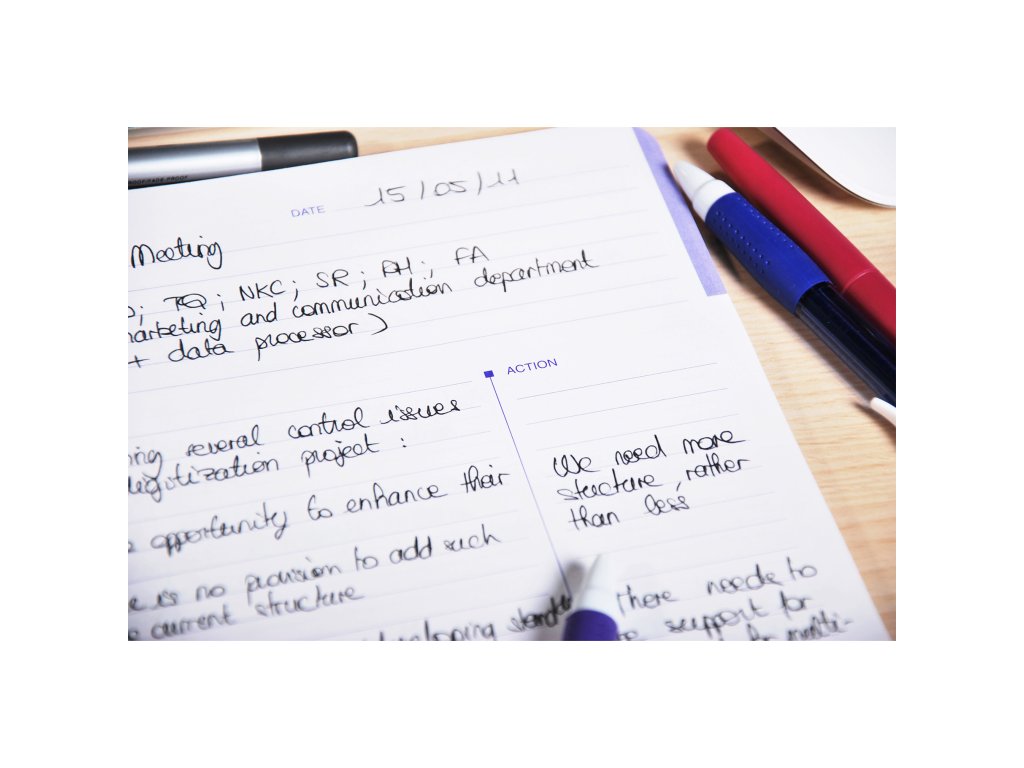 DATE 15/05/11
Meeting
; TQ ; NKC ; SR ; PH ; FA
marketing and communication department
+ data processor )
ACTION
ing several control issues
digitization project :
opportunity to enhance their
e is no provision to add such
current structure
We need more
structure, rather
than less
developing
There needs to
support for